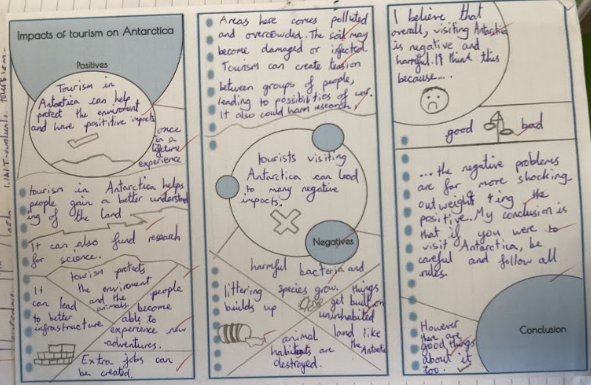 Impacts of tourism on Antarctica
Positives
Tourism in
Antactica can help
protect the enviroment
and have posititive impacts
once
in a
lifetime
experience
tourism in Antarctica helps
people gain a better understand
ing of the land
It can also fund research
for science.
tourism protects
the enviroment
and the
animals
It
can lead
to better
infrastructure
people
become
able to
experience new
adventures.
Extra jobs can
be created.
Areas here comes polluted
and overcrowded. The soil may
become damaged or infected.
Tourism can create tension
between groups of people,
leading to possibilities of war.
It also could harm research.
tourists visiting
Antarctica can lead
to many negative
impacts.
Negatives
harmful bacteria and
species grow.
littering
builds up
things
get built on
uninhabited
land like
the Antarctic
animal
habitats are
destroyed.
I believe that
overall, visiting Antarctica
is negative and
harmful. I think this
because...
good bad
...the negative problems
are far more shocking.
outweight ting the
positive. My conclusion is
that if you were to
visit Antarctica, be
careful and follow all
rules.
However
there are
good things
about it
too.
Conclusion